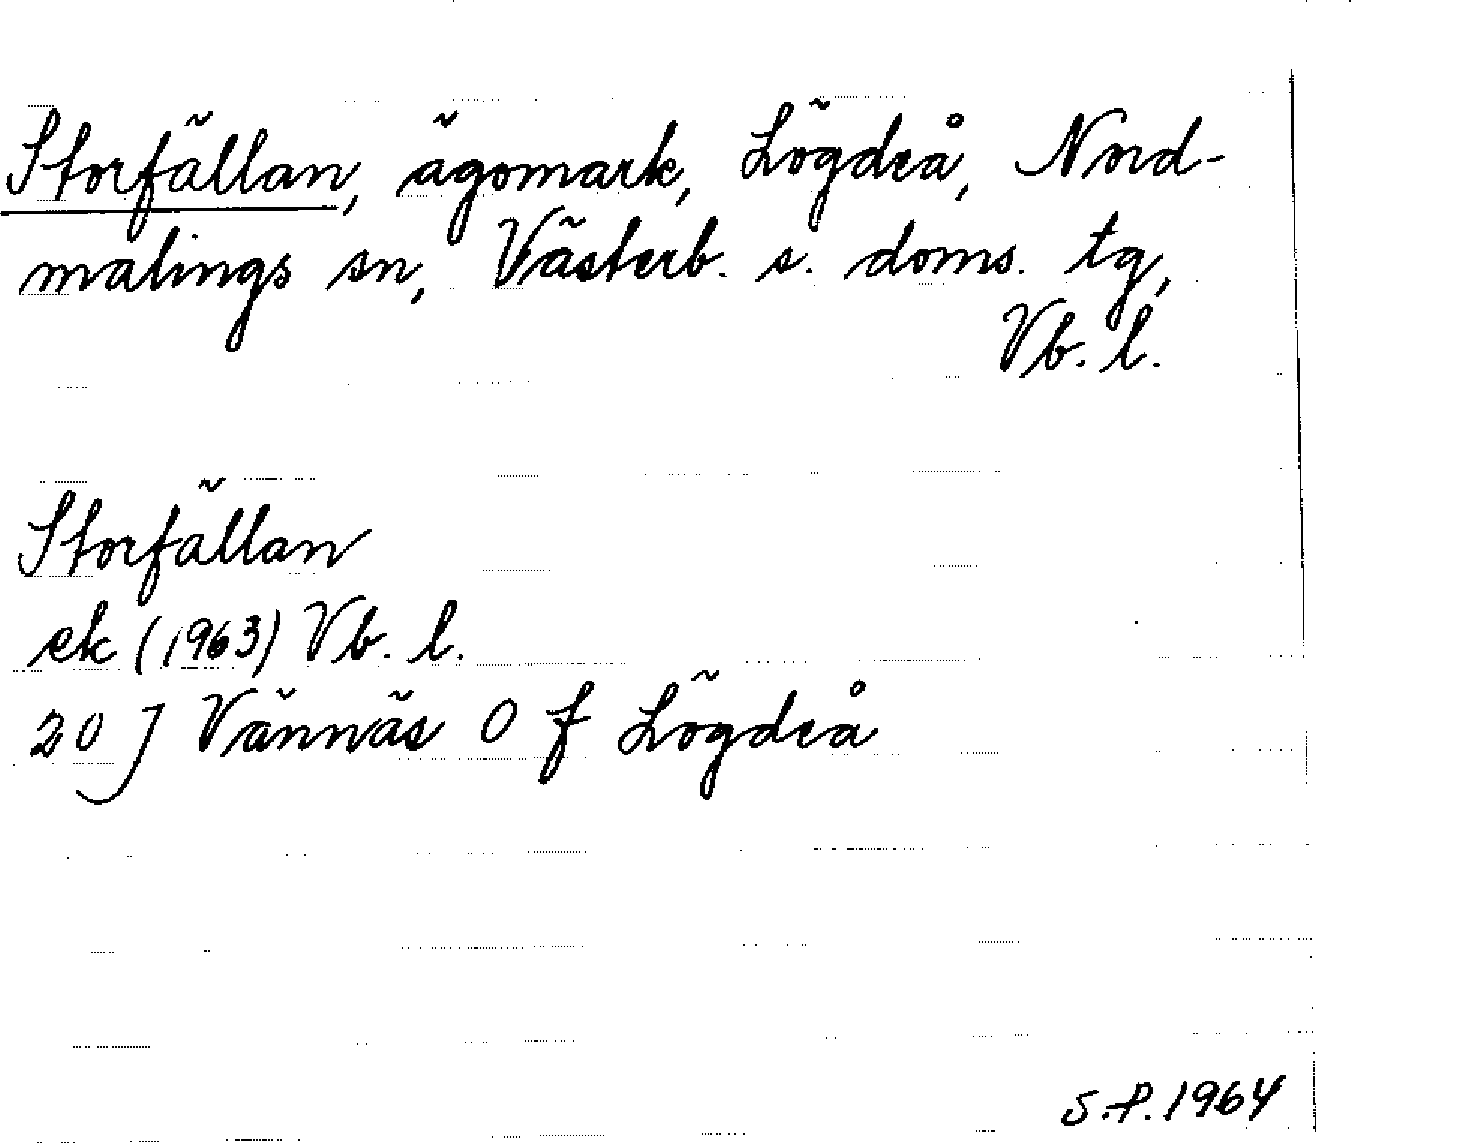 Storfällan, ägomark, Lögdeå, Nord-
malings sn, Västerb. s. doms. tg,
Vb. l.
Storfällan
ek (1963) Vb. l.
20 J Vännäs 0 f Lögdeå
S.P. 1964